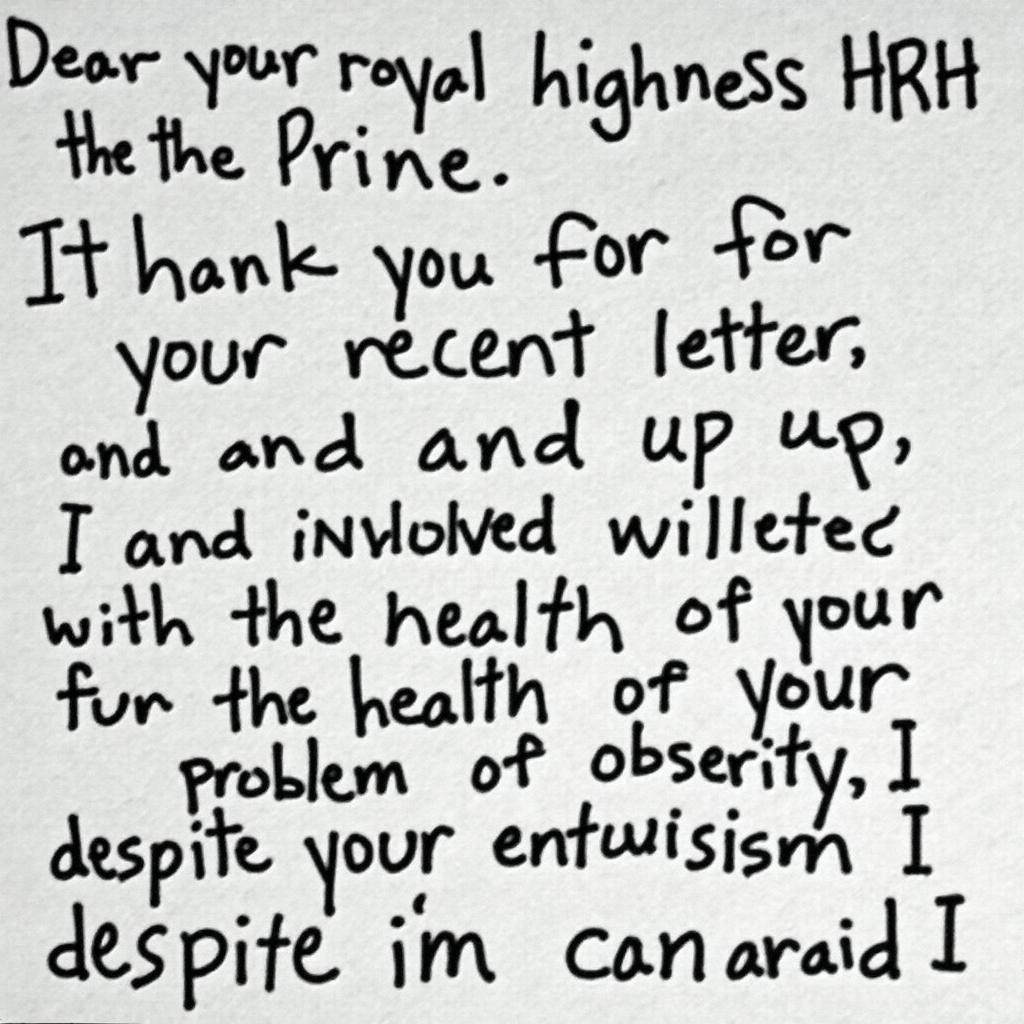 Dear your royal highness HRH
the the Prine.
It hank you for for
your recent letter,
and and and up up,
I and invlolved willeted
with the health of your
fur the health of your
problem of obserity, I
despite your entwisism I
despite i'm can araid I